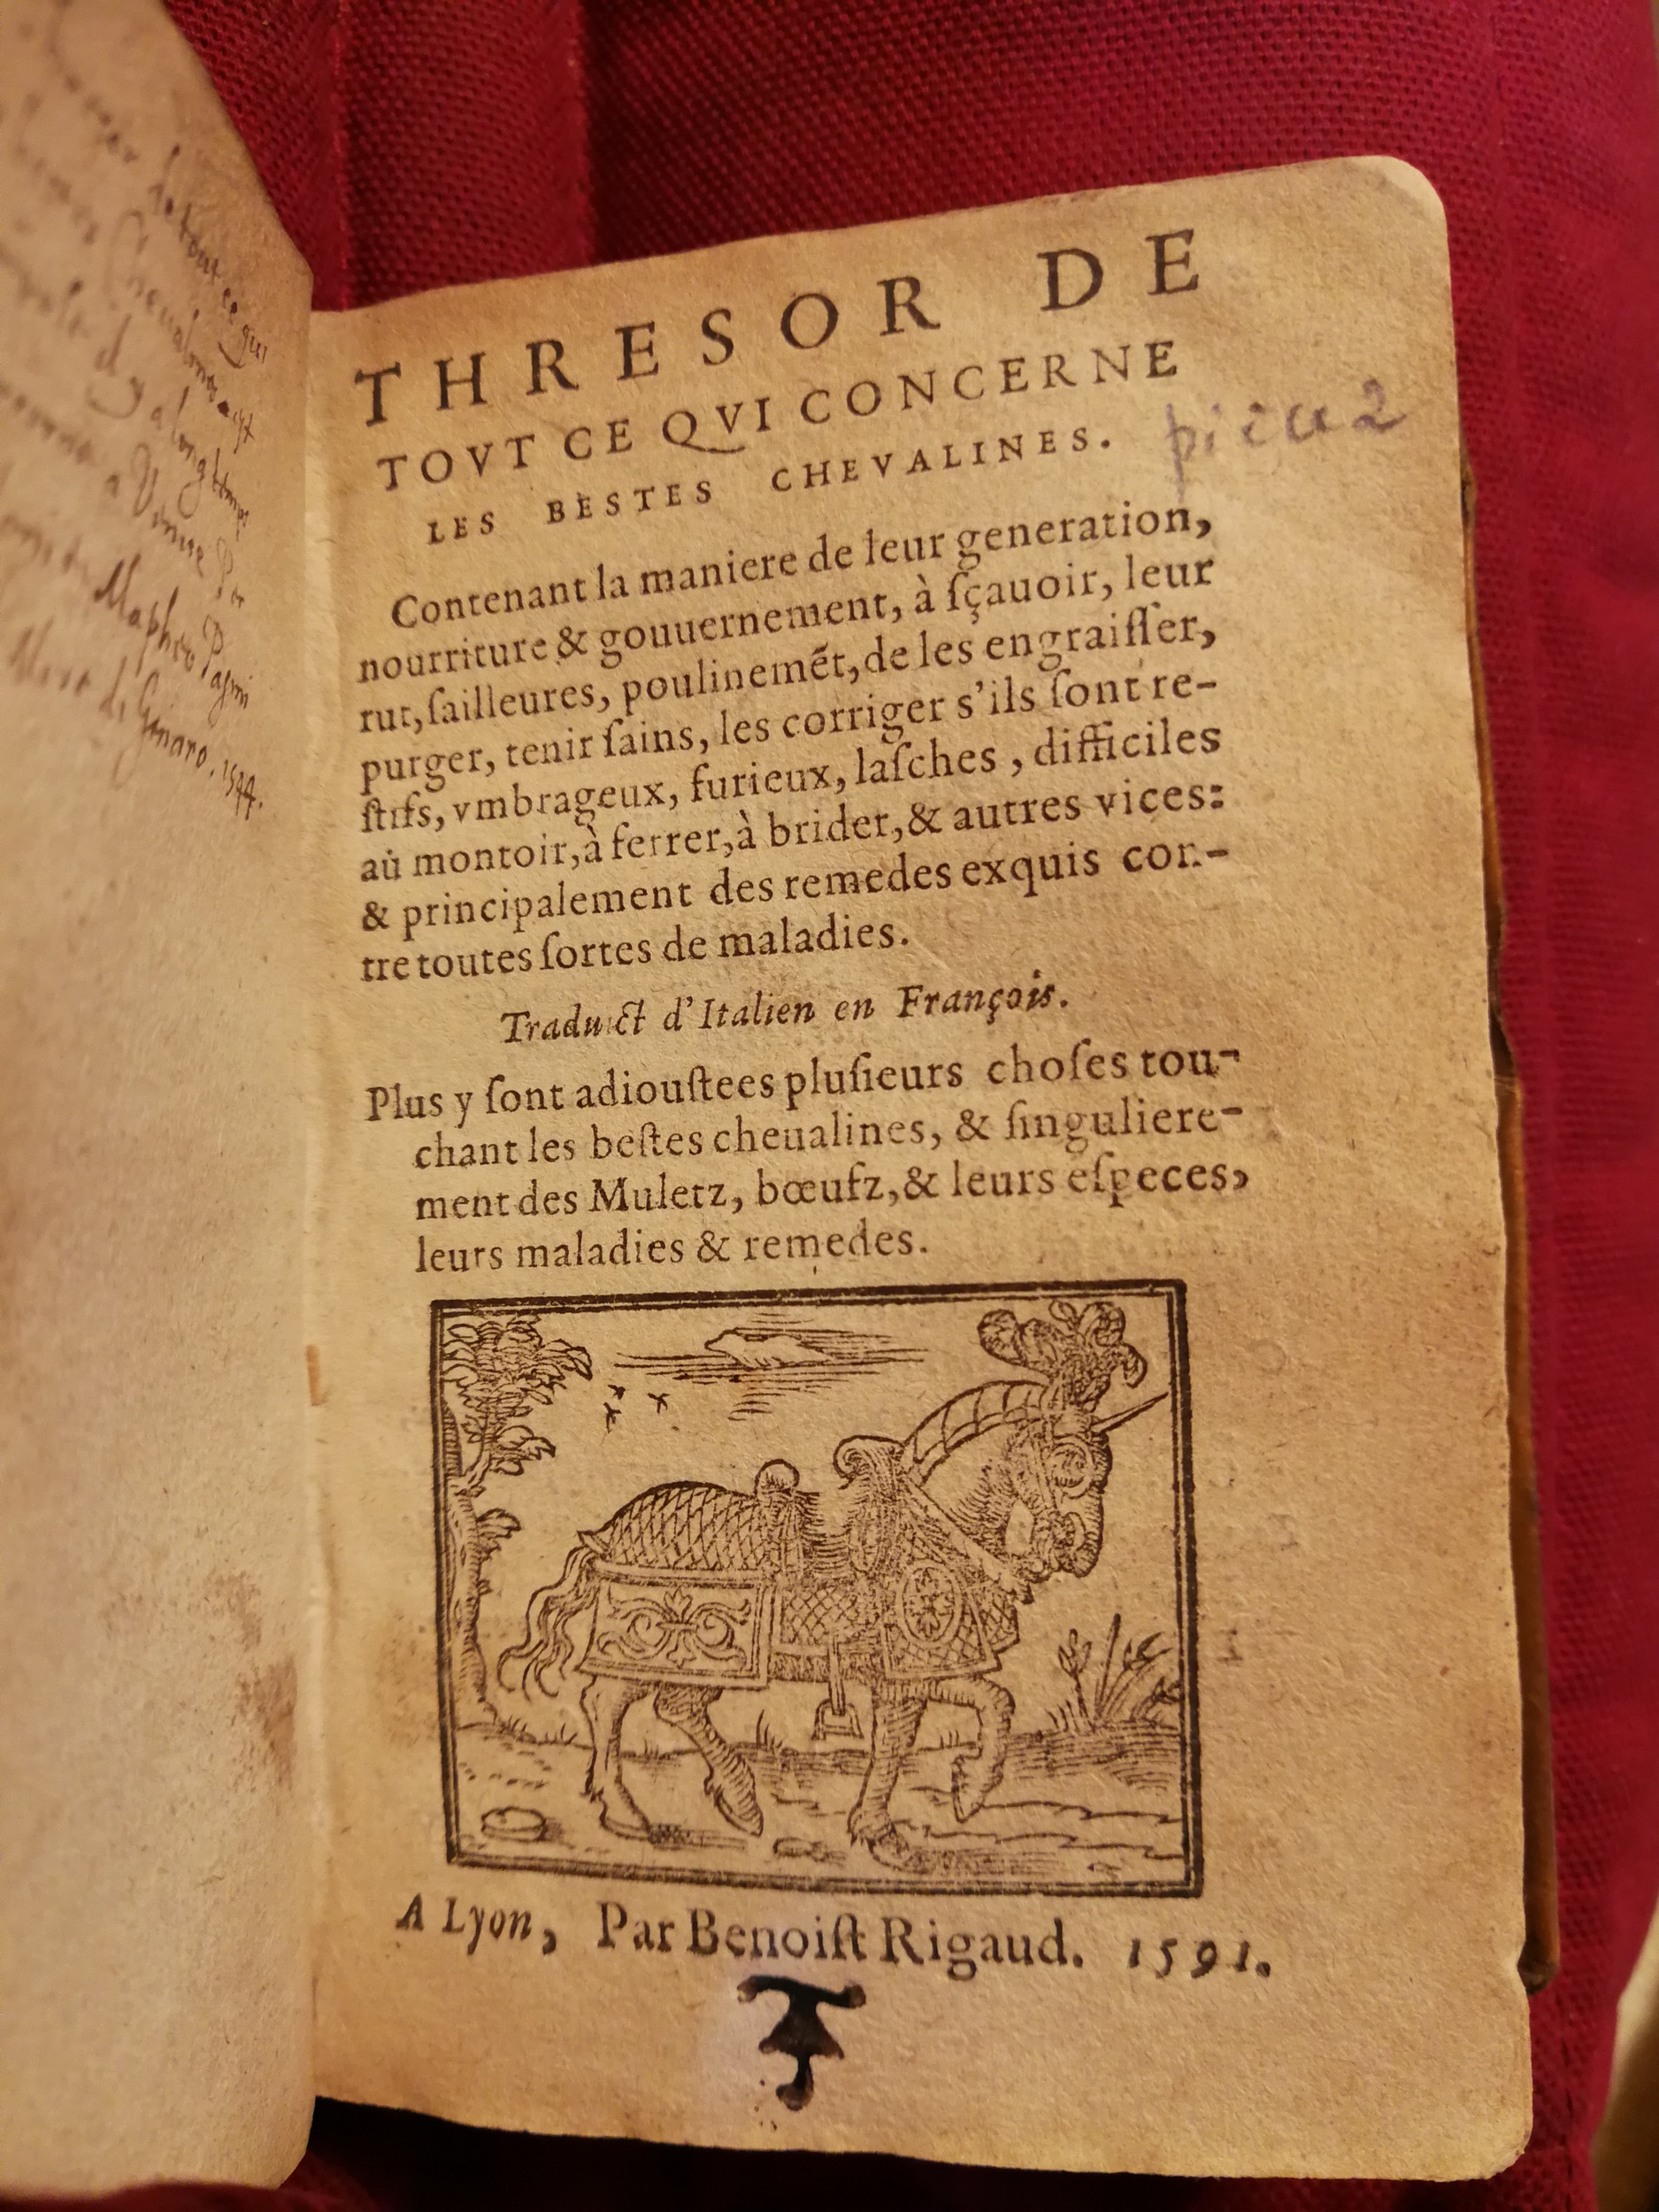 de tout ce qui
Mapheo Pagni
di Genaro. 1544.
THRESOR DE
TOVT CE QVI CONCERNE
LES BESTES CHEVALINES.
Contenant la maniere de leur generation,
nourriture & gouuernement, à ſçauoir, leur
rut, ſailleures, poulinemẽt, de les engraiſſer,
purger, tenir ſains, les corriger s'ils ſont re-
ſtifs, vmbrageux, furieux, laſches, difficiles
au montoir, à ferrer, à brider, & autres vices:
& principalement des remedes exquis con-
tre toutes ſortes de maladies.
Traduict d'Italien en François.
Plus y ſont adiouſtees pluſieurs choſes tou-
chant les beſtes cheualines, & ſinguliere-
ment des Muletz, bœufz, & leurs eſpeces,
leurs maladies & remedes.
A Lyon, Par Benoiſt Rigaud. 1591.